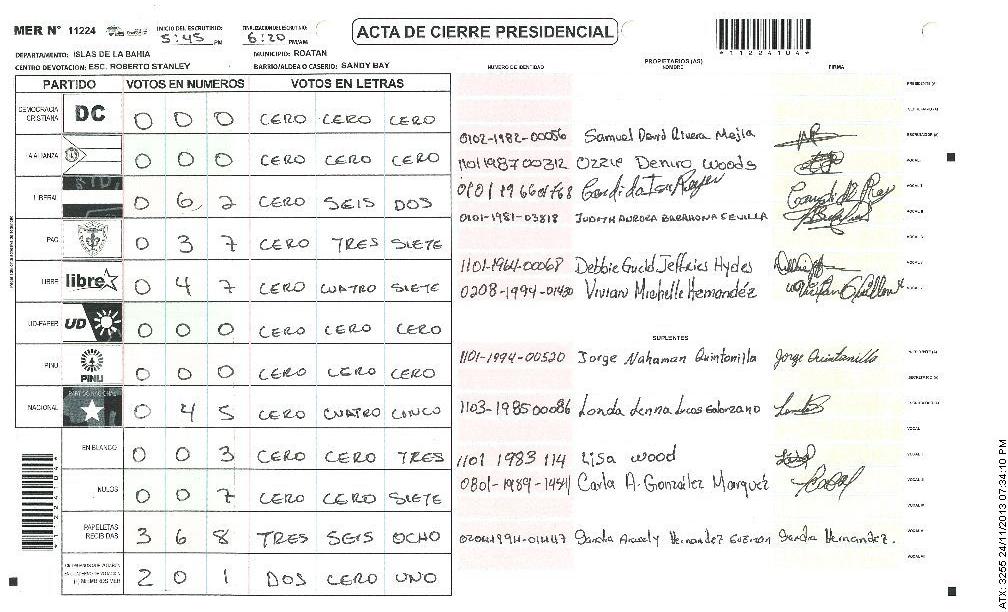 MER N° 11224
INICIO DEL ESCRUTINIO: 5:45 PM
FINALIZACION DEL ESCRUTINIO: 6:20 PM/AM
ACTA DE CIERRE PRESIDENCIAL
*11224104*
DEPARTAMENTO: ISLAS DE LA BAHIA
MUNICIPIO: ROATAN
CENTRO DE VOTACION: ESC. ROBERTO STANLEY
BARRIO/ALDEA O CASERIO: SANDY BAY
NUMERO DE IDENTIDAD
PROPIETARIOS (AS)
NOMBRE
FIRMA
PARTIDO VOTOS EN NUMEROS VOTOS EN LETRAS
DEMOCRACIA CRISTIANA DC 0 0 0 CERO CERO CERO
ALIANZA 0 0 0 CERO CERO CERO
LIBERAL 0 6 2 CERO SEIS DOS
PAC 0 3 7 CERO TRES SIETE
LIBRE libre 0 4 7 CERO CUATRO SIETE
UD-FAPER UD 0 0 0 CERO CERO CERO
PINU PINU 0 0 0 CERO CERO CERO
NACIONAL PARTIDO NACIONAL 0 4 5 CERO CUATRO CINCO
EN BLANCO 0 0 3 CERO CERO TRES
NULOS 0 0 7 CERO CERO SIETE
PAPELETAS RECIBIDAS 3 6 8 TRES SEIS OCHO
2 0 1 DOS CERO UNO
0102-1982-00056 Samuel David Rivera Mejia
1101198700312 Ozzie Deniro Woods
0101-1981-03818 JUDITH AURORA BARAHONA SEVILLA
1101-1964-00068 Debbie Jeffries Hydes
0208-1994-01430 Vivian Michelle Hernandéz
SUPLENTES
1101-1994-00520 Jorge Nahaman Quintanilla Jorge Quintanilla
1103-198500086 Lucas
1101 1983 114 Lisa Wood
0801-1989-1454 Carla A. González Marquez
Hernandez Guzman Sandra Hernandez.
ATX: 3255 24/11/2013 07:34:10 PM